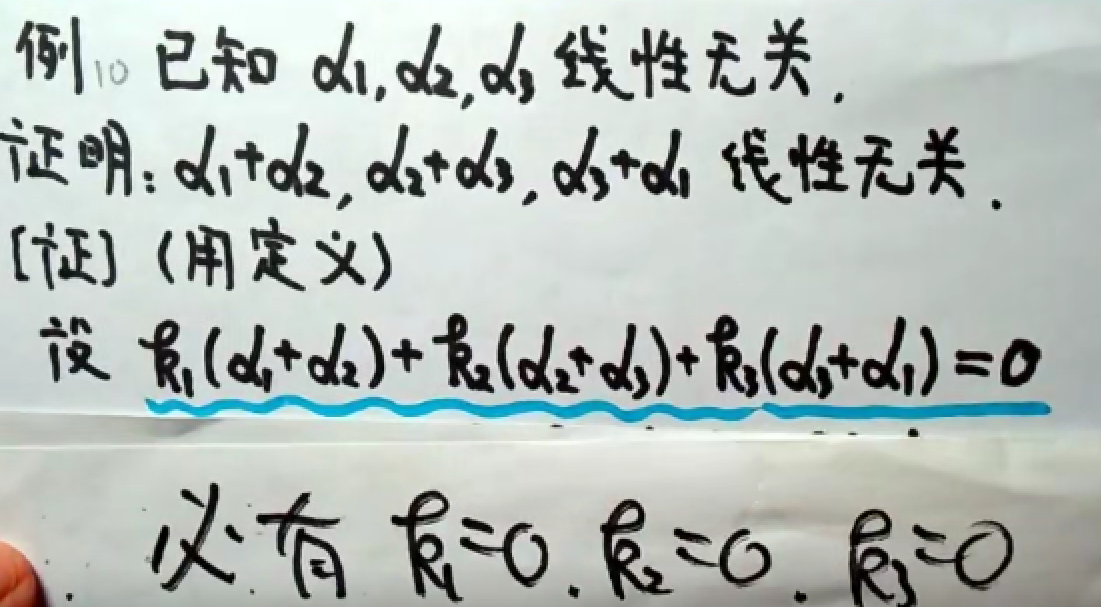 例10 已知 α1,α2,α3 线性无关.
证明:α1+α2,α2+α3,α3+α1 线性无关.
[证](用定义)
设 k1(α1+α2)+k2(α2+α3)+k3(α3+α1)=0
必有 k1=0.k2=0.k3=0